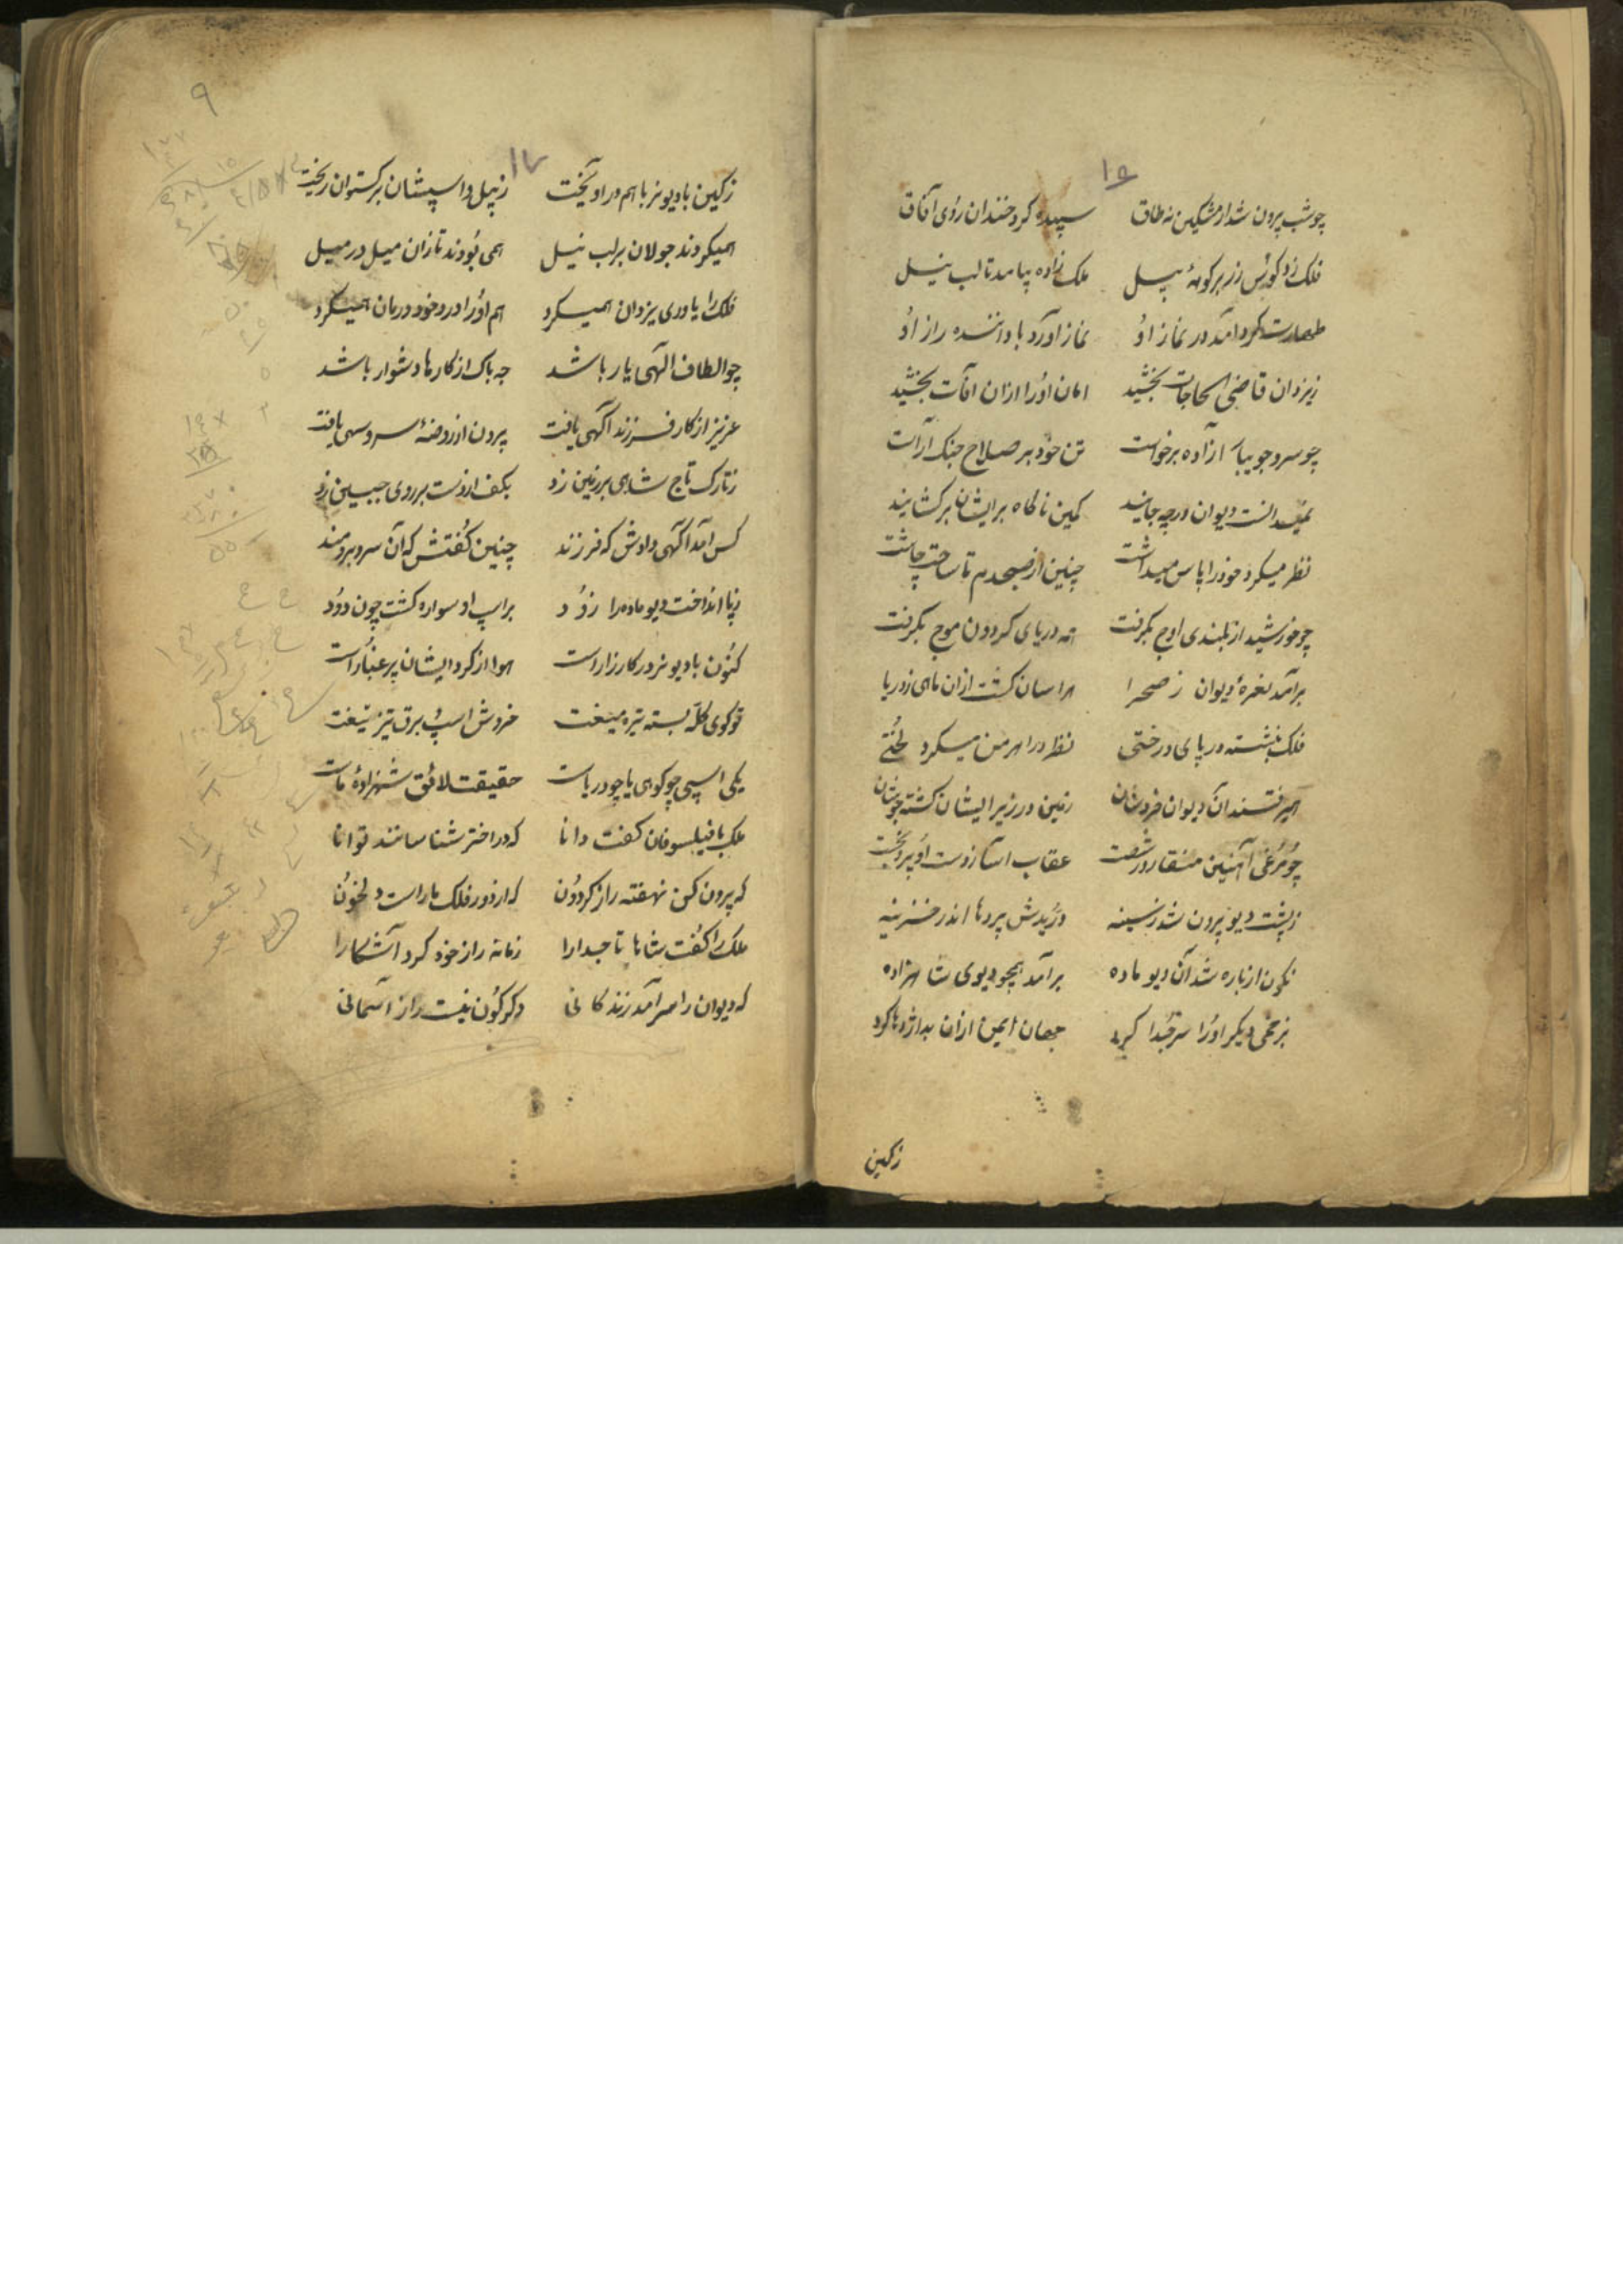 ۱۵
چو شب بیرون شد از مشکین نه طاق سپیده کرد خندان روی آفاق
فلک زد کوس زر بر کوهه پیل ملک زاده بیامد تا لب نیل
طهارت کرد آمد در نماز او نماز آورد با داننده راز او
ز یزدان قاضی الحاجات بخشید امان او را ازان آفات بخشید
چو سرو جویبار آزاده برخواست تن خود بر صلاح جنک آراست
نمیدانست دیوان در چه جایند کمین ناکاه برایشان برکشایند
نظر میکرد خود را پاس میداشت چنین از صبحدم تا ساخت چاشت
چو خورشید از بلندی اوج بکرفت همه دریای کردون موج بکرفت
برآمد نعره دیوان ز صحرا هراسان کشت ازان ماهی ز دریا
فلک بنشسته در پای درختی نظر در اهرمن میکرد لختی
همیرفتند آن دیوان خروشان زمین در زیر ایشان کشته جوشان
چو مرغی آهنین منقار در شصت عقاب آسا ز دست او برون جست
ز پشت دیو بیرون شد ز سینه دریدش پردها اندر خزینه
نکون از باره شد آن دیو ماده برآمد همچو دیوی شاهزاده
بزخمی دیکر او را سر جدا کرد جهان ایمن ازان بد اژدها کرد
زکین
۹
۱۷
زکین با دیو نر باهم در آویخت ز پیل و اسپشان برکستوان ریخت
همیکردند جولان بر لب نیل همی بودند تازان میل در میل
فلک را یاوری یزدان همیکرد هم او را درد خود درمان همیکرد
چو الطاف آلهی یار باشد چه باک از کارها دشوار باشد
عزیز از کار فرزند آکهی یافت برون از روضه سرو سهی یافت
ز تارک تاج شاهی بر زمین زد بکف از دست بر روی جبین زد
کس آمد آکهی دادش که فرزند چنین کفتش که آن سرو برومند
ز پا انداخت دیو ماده را زود بر اسپ او سواره کشت چون دود
کنون با دیو نر در کارزار است هوا از کرد ایشان پر غبار است
تو کوی کله بسته تیره میغست خروش اسپ برق تیز تیغست
یکی اسپی چو کوهی یا چو دریاست حقیقت لائق شهزاده ماست
ملک با فیلسوفان کفت دانا که در اختر شناسانند توانا
که بیرون کن نهفته راز کردون که از دور فلک ما راست دلخون
ملک را کفت شاها تاجدارا زمانه راز خود کرد آشکارا
که دیوان را سر آمد زندکانی دکرکون نیست راز آسمانی